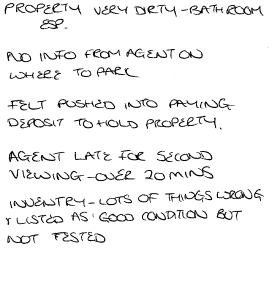 PROPERTY VERY DIRTY - BATHROOM
ESP.
NO INFO FROM AGENT ON
WHERE TO PARK
FELT PUSHED INTO PAYING
DEPOSIT TO HOLD PROPERTY.
AGENT LATE FOR SECOND
VIEWING - OVER 20 MINS
INVENTRY - LOTS OF THINGS WRONG
& LISTED AS 'GOOD CONDITION BUT
NOT TESTED